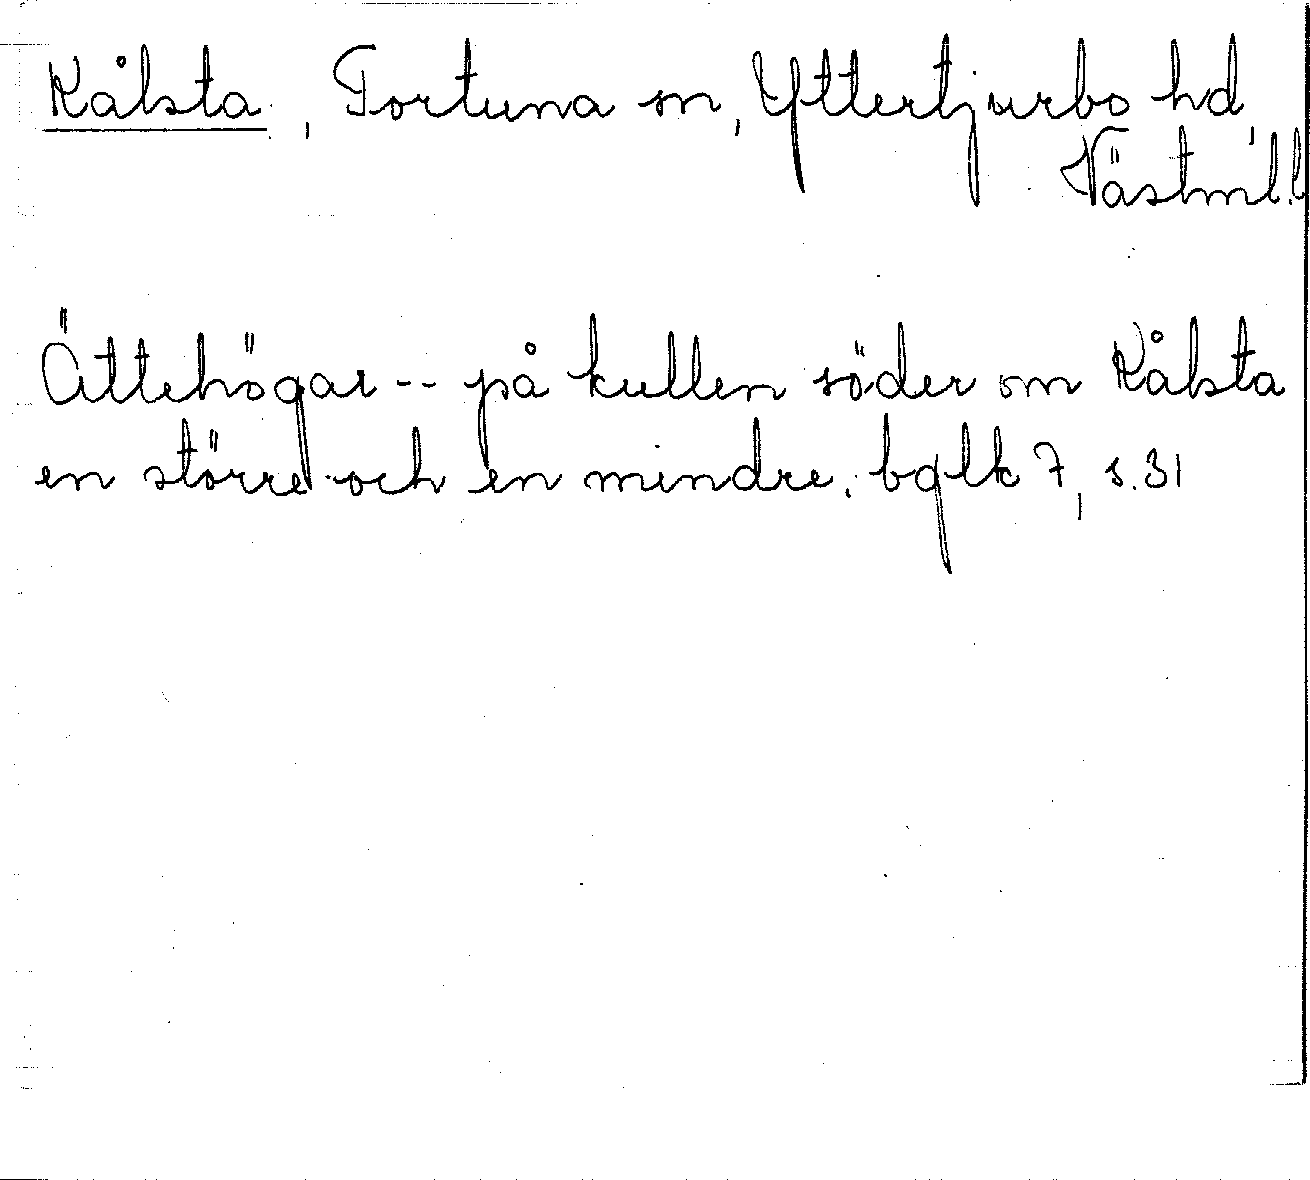 Kålsta, Tortuna sn, Yttertjurbo hd,
Västml.l
Ättehögar -- på kullen söder om Kålsta
en större och en mindre. bglk 7, s. 31